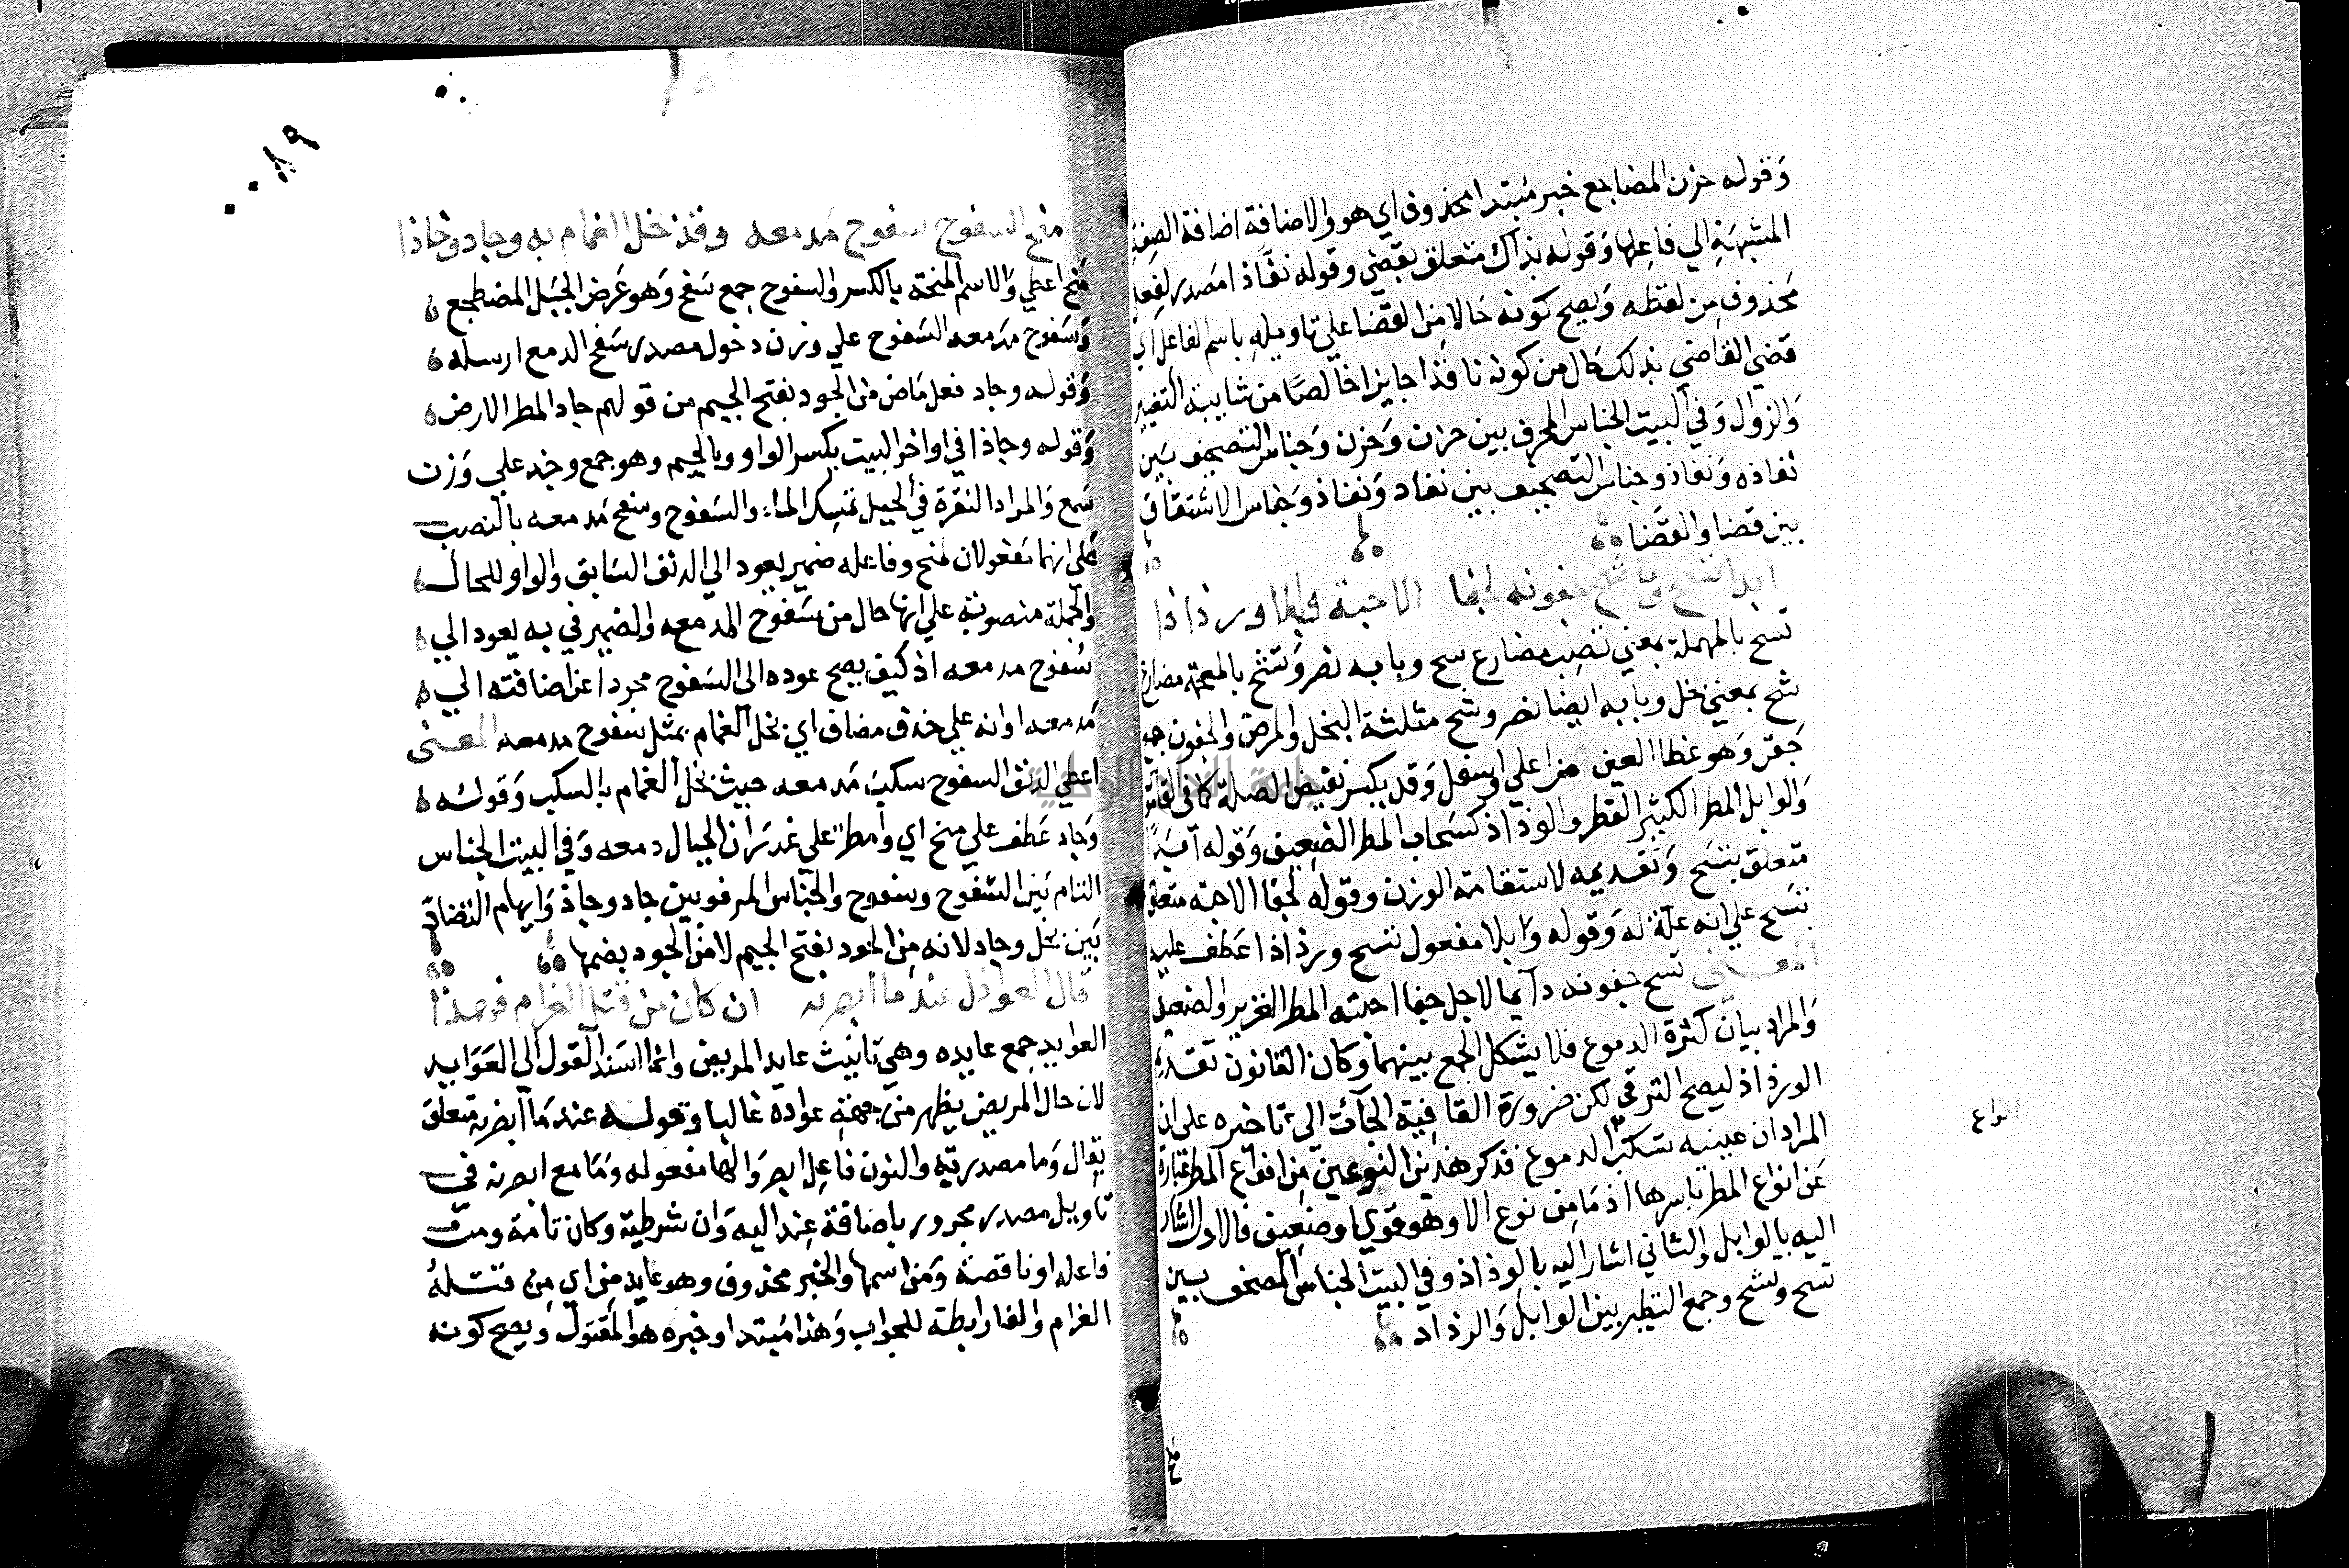 وقوله حزن المضاجع خبر مبتدا محذوف اي هو والاضافة اضافة الصفة
المشبهة الي فاعلها وقوله بذاك متعلق بقضي وقوله نفاذا مصدر لفعل
محذوف من لفظه ويصح كونه حالا من القضا علي تاويله باسم الفاعل اي
قضي القاضي بذلك حال من كونه نافذا جايزا خالصا من شايبة التغير
والزوال وفي البيت الجناس المحرف بين حزن وحزن وجناس التصحيف بين
نفاده ونفاذ وجناس التصحيف بين نفاد ونفاذ وجناس الاشتقاق
بين قضا والقضا
ابدا تسح وما تشح جفونه لجفا الاحبة وابلا ورذاذا
تسح بالمهملة بمعني تصب مضارع سح وبابه نصر وتشح بالمعجمة مضارع
شح بمعني بخل وبابه ايضا نصر وشح مثلثة البخل والحرص والجفون جمع
جفن وهو غطا العين من اعلي واسفل وقد يكسر نقيض الصلة كما في
والوابل المطر الكثير القطر والوذاذ كسحاب المطر الضعيف وقوله ابدا
متعلق بتسح وتقديمه لاستقامة الوزن وقوله لجفا الاحبه متعلق
بتسح علي انه علة له وقوله وابلا مفعول تسح ورذاذا عطف عليه
المعني تسح جفونه دآيما لاجل جفا احبته المطر الغزير والضعيف
والمراد بيان كثرة الدموع فلا يشكل الجمع بينهما وكان القانون تقديم
الورذاذ ليصح الترقي لكن ضرورة القافية الجآت الي تاخيره علي ان
المراد ان عينيه تسكب الدموع فذكر هذين النوعين من انواع المطر عبارة
عن انواع المطر باسرها اذ ما من نوع الا وهو قوي او ضعيف فالاول اشار
اليه بالوابل والثاني اشار اليه بالوذاذ وفي البيت الجناس المصحف بين
تسح وتشح وجمع النظير بين الوابل والرذاد
انواع
منح
٨٩
منح السفوح سفوح مدمعه وقد بخل الغمام به وجاد وجاذا
منح اعطي والاسم المنحة بالكسر والسفوح جمع سفح وهو عرض الجبل المضطجع
وسفوح مدمعه السفوح علي وزن دخول مصدر سفح الدمع ارسله
وقوله وجاد فعل ماض من الجود بفتح الجيم من قولهم جاد المطر الارض
وقوله وجاذا في اواخر البيت بكسر الواو وبالجيم وهو جمع وجذ علي وزن
سمع والمراد النقرة في الجبل تمسك الماء والسفوح وسفح مدمعه بالنصب
علي انهما مفعولان لمنح وفاعله ضمير يعود الي الدنف السابق والواو للحال
والجملة منصوبة علي انها حال من سفوح المدمعه والضمير في به يعود الي
سفوح مدمعه اذ كيف يصح عوده الي السفوح مجردا عن اضافته الي
مدمعه او انه علي حذف مضاف اي بخل الغمام بمثل سفوح مدمعه المعني
اعطي الدنف السفوح سكب مدمعه حيث بخل الغمام بالسكب وقوله
وجاد عطف علي منح اي وامطر علي غدران الجبال دمعه وفي البيت الجناس
التام بين السفوح وسفوح والجناس المرفو بين جاد وجاذ وايهام التضاد
بين بخل وجاد لانه من الجود بفتح الجيم لا من الجود بضمها
قال العوايد عندما ابصرنه ان كان من قتل الغرام فهذا
العوايد جمع عايده وهي تانيث عايد المريض وانما اسند القول الي العوايد
لان حال المريض يظهر من جهة عواده غالبا وقوله عندما ابصرنه متعلق
بقال وما مصدرية والنون فاعل ابصر والها مفعوله وما مع ابصرنه في
تاويل مصدر مجرور باضافة عند اليه وان شرطية وكان تامة ومن
فاعله او ناقصة ومن اسمها والخبر محذوف وهو عايد من اي من قتله
الغرام والفا رابطة للجواب وهذا مبتدا وخبره هو المقتول ويصح كونه